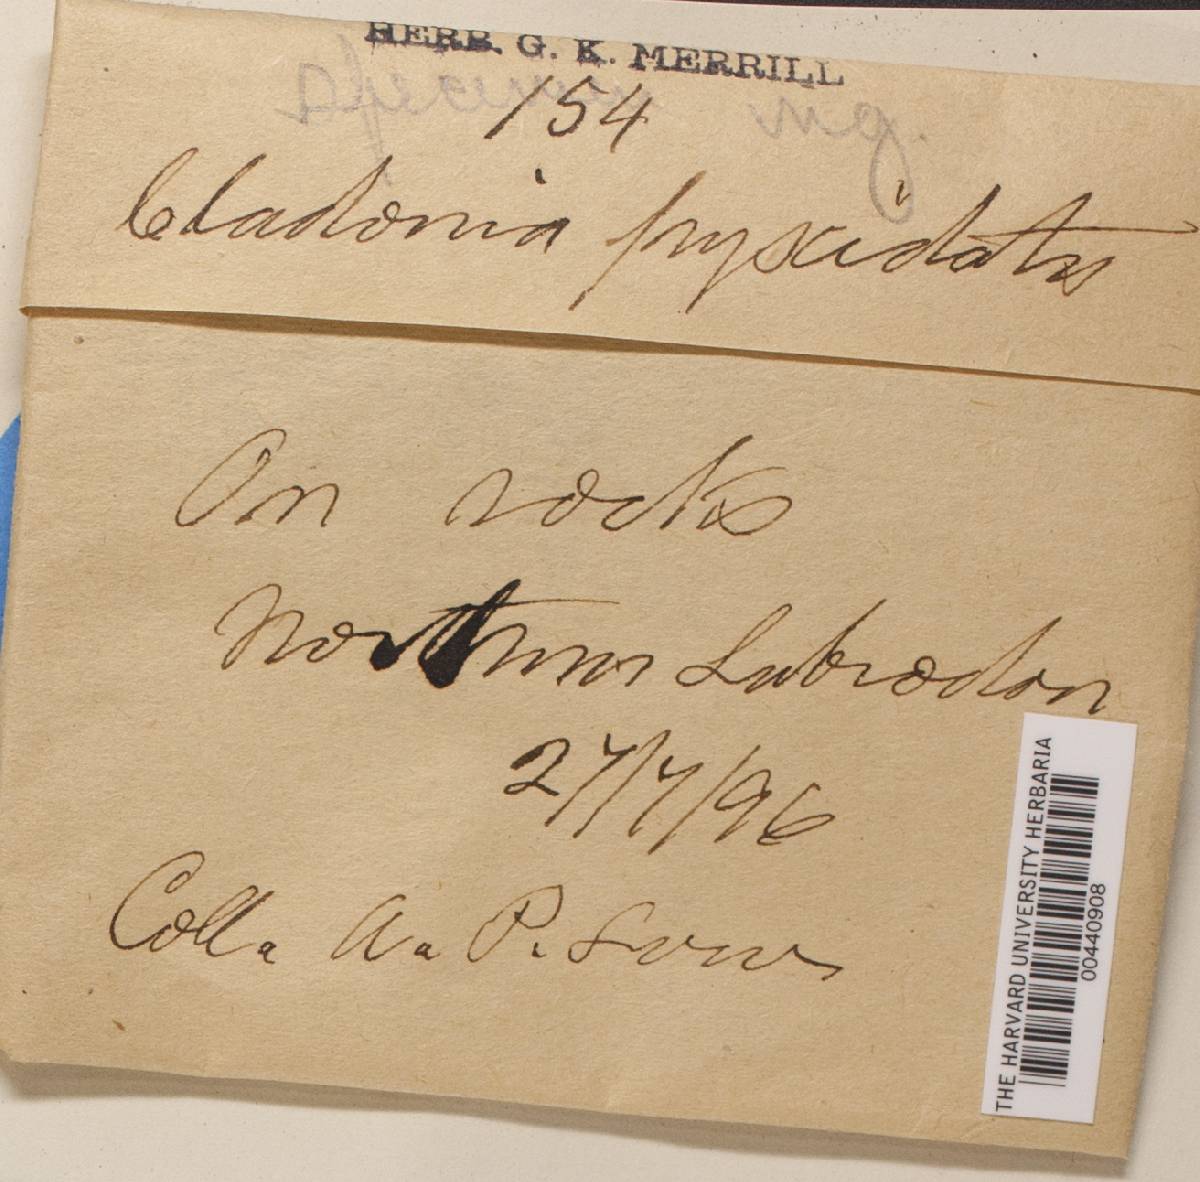 HERB. G. K. MERRILL
Specimen mg.
154
Cladonia pyxidata
On rocks
Northern Labrador
27/7/96
Coll. A. P. Low
THE HARVARD UNIVERSITY HERBARIA
00440908